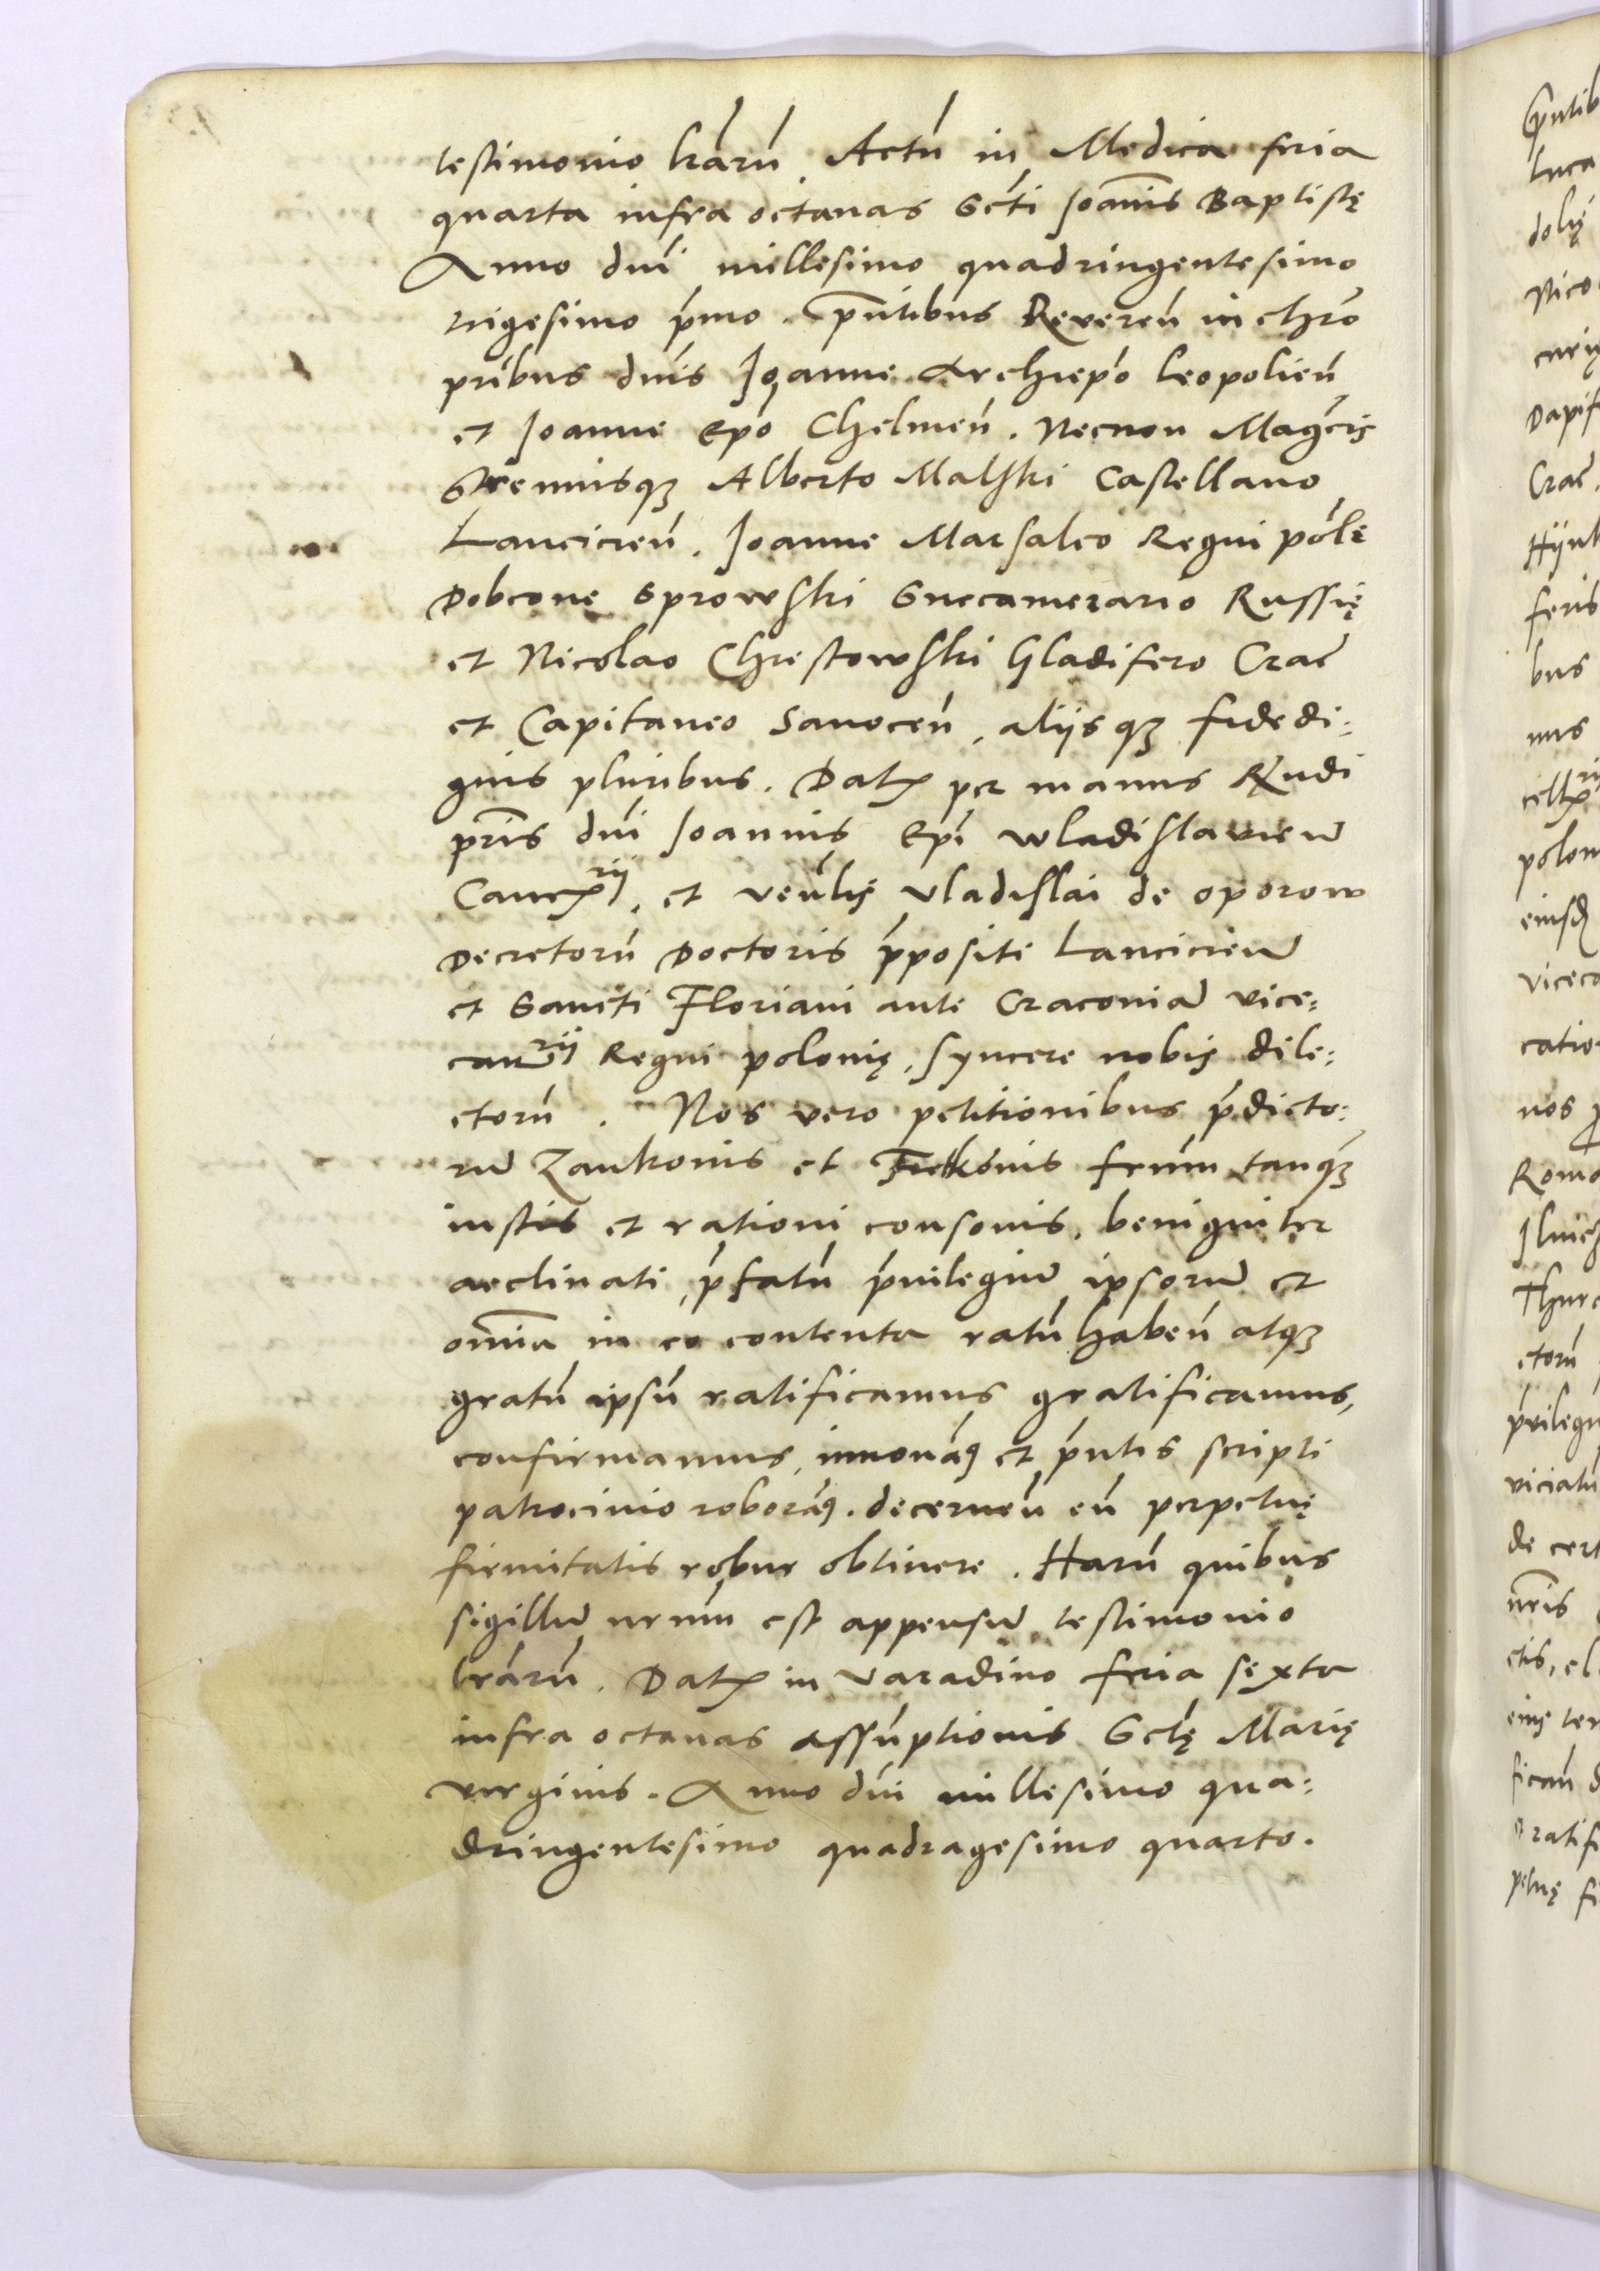 testimonio lrarū. Actū in Medica feria
quarta infra octavas Scti Joannis Baptistę
Anno dni millesimo quadringentesimo
trigesimo prmo. Pntibus Reveren in chro
pribus dnis Joanne Archiepo Leopolien
et Joanne Epo Chelmen. Necnon Magcis
Strenuisqz Alberto Malski Castellano
Lancicien. Joanne Marsalco Regni Polę
Dobcone Sprowski Succamerario Russię
et Nicolao Chrestowski Gladifero Crac
et Capitaneo Sanocen, aliisqz fidedi:
gnis pluribus. Dat per manus Rndi
pris dni Joannis Epi Wladislavien
Cancrii, et venlis Vladislai de Oporow
Decretorū Doctoris ppositi Lancicien
et Sancti Floriani ante Cracoviā vice:
canrii Regni Polonię, syncere nobis dile:
ctorū. Nos vero petitionibus pdicto:
rū Zankonis et frum tanqz
iustis et rationi consonis, benigniter
acclinati, pfatū pvilegiū ipsorū et
omnia in eo contenta ratū haben atqz
gratū ipsū ratificamus gratificamus,
confirmamus, innovams et pntis scripti
patrocinio roborams. decernen eū perpetuę
firmitatis robur obtinere. Harū quibus
sigillū nrum est appensū testimonio
lrarū. Dat in Varadino feria sexta
infra octavas assūptionis Sctę Marię
virginis. Anno dni millesimo qua:
dringentesimo quadragesimo quarto.